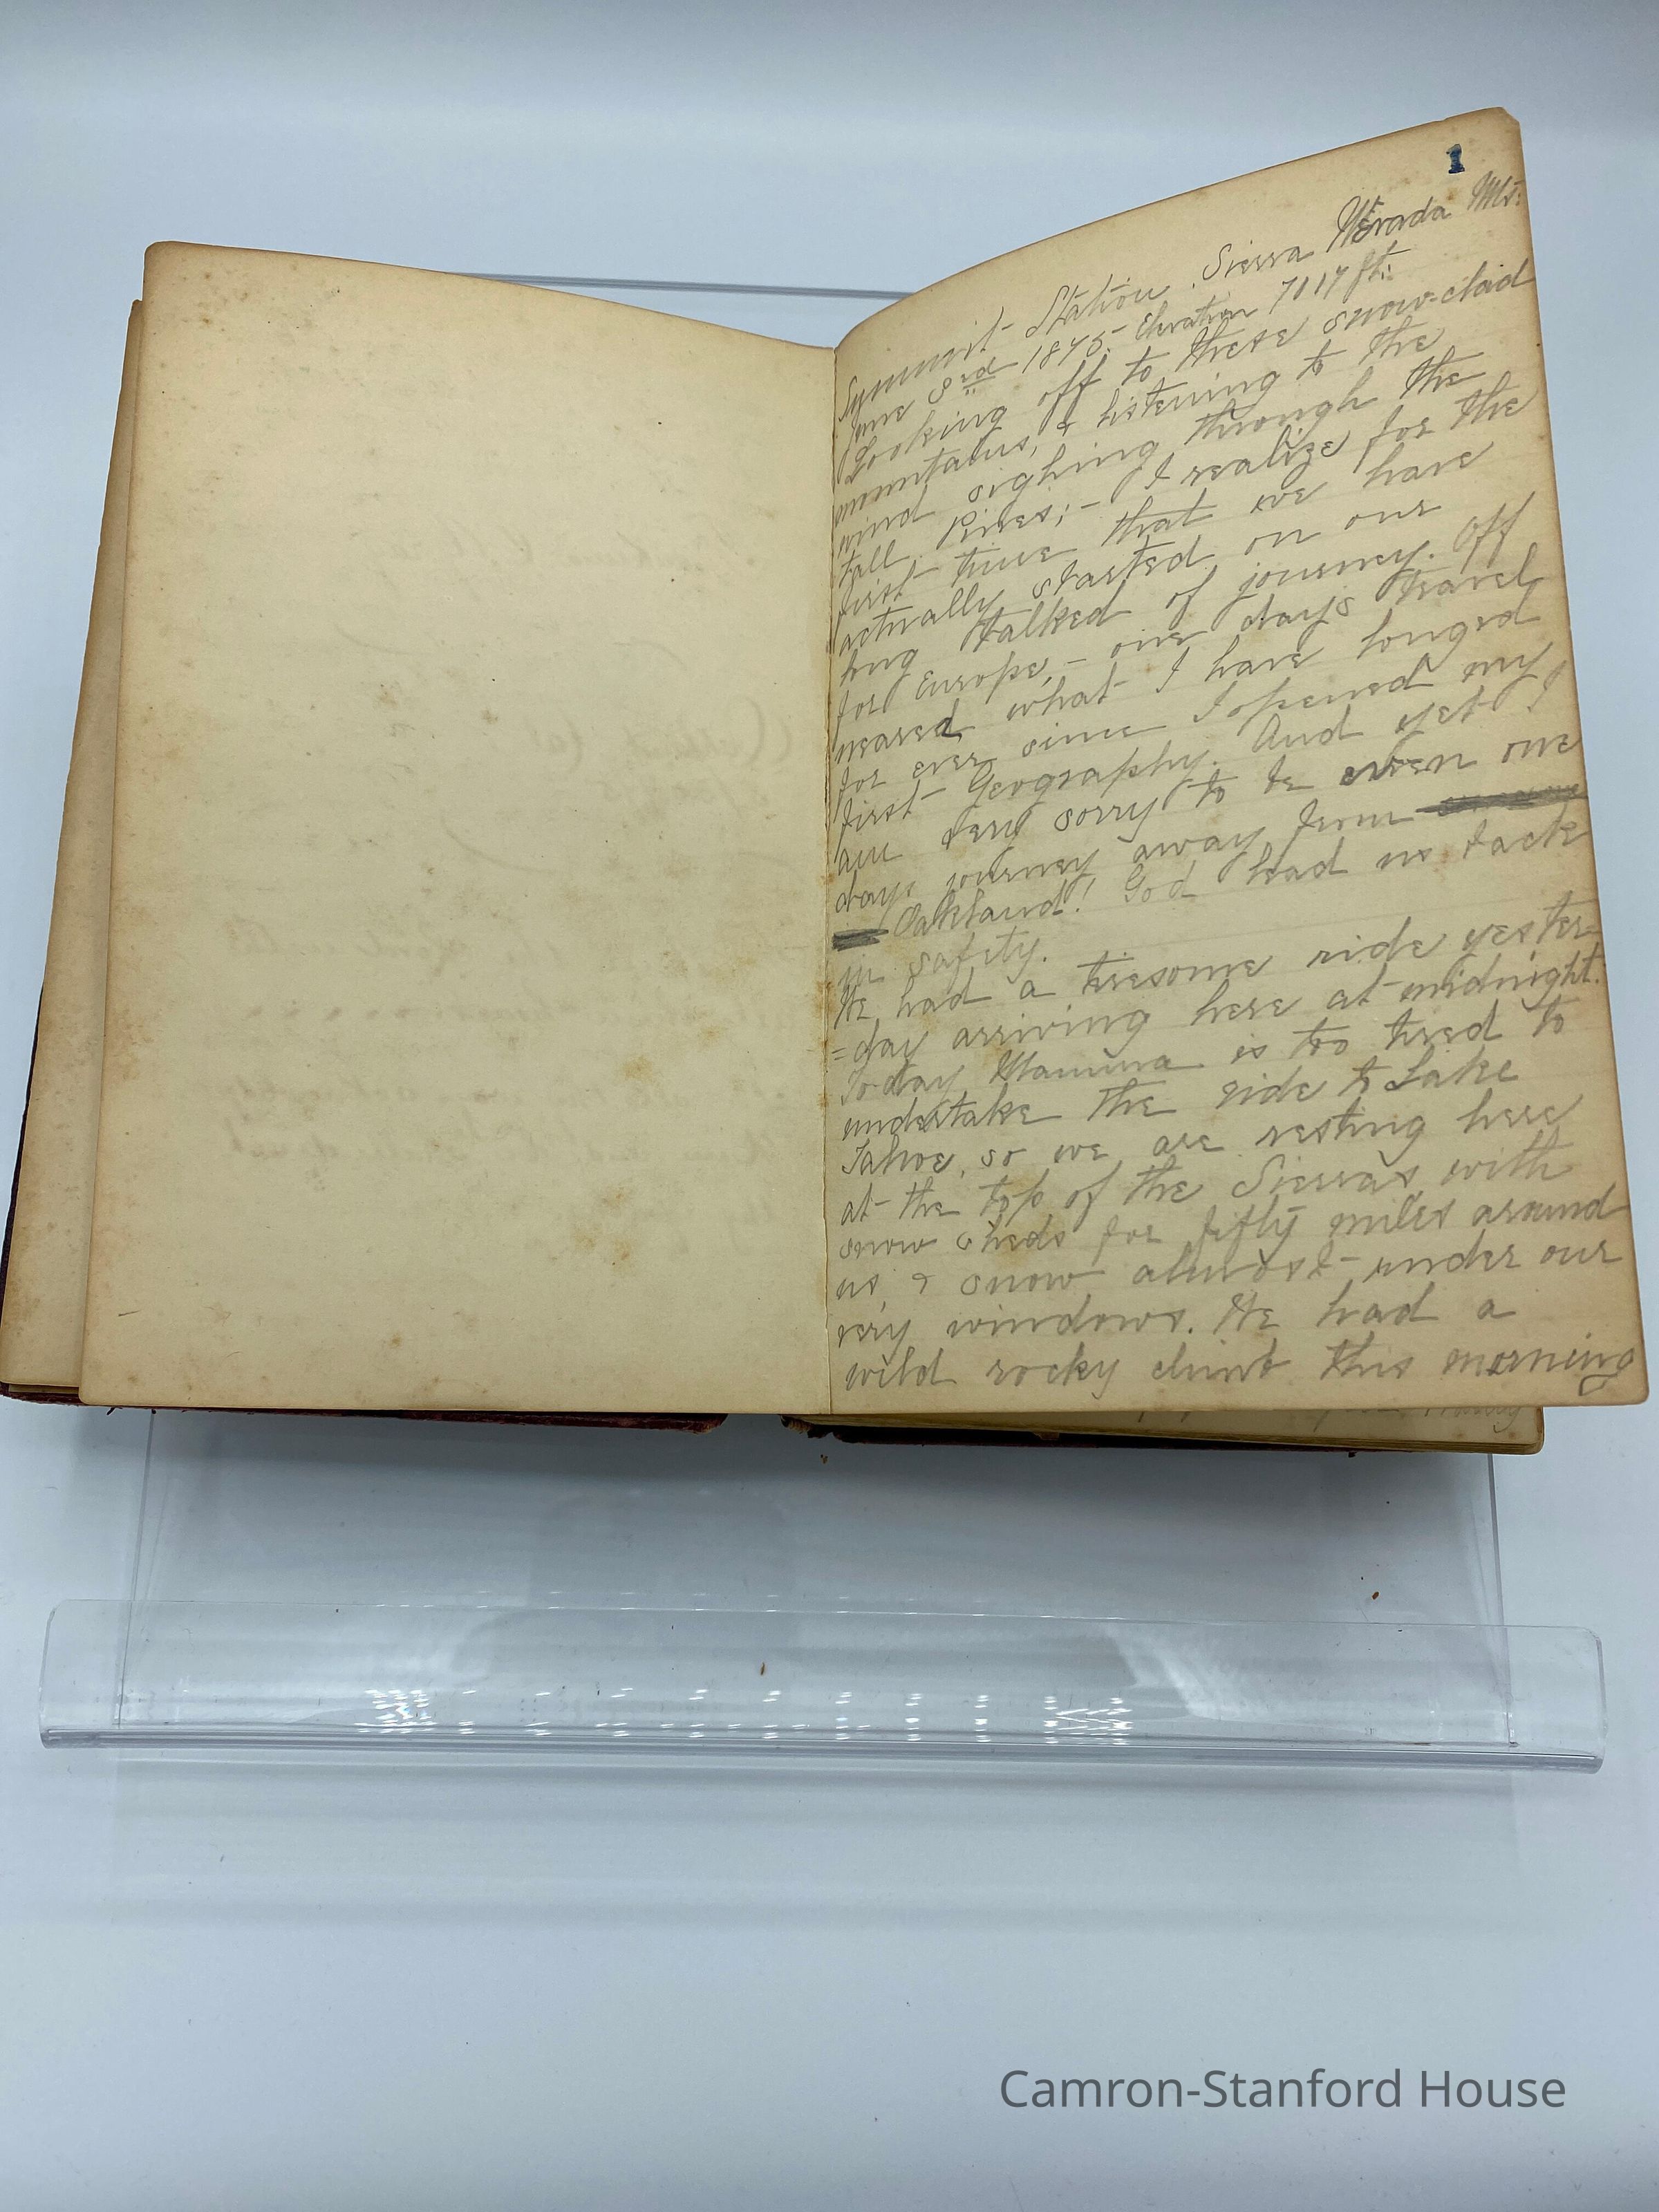 1
Summit Station. Sierra Nevada Mts:
June 3rd 1875. Elevation 7017 ft:
Looking off to these snow-clad
mountains, & listening to the
wind sighing through the
tall Pines;- I realize for the
first time that we have
actually started on our
long talked of journey. Off
for Europe,- one days travel
neared what I have longed
for ever since I opened my
first Geography. And yet I
am very sorry to be even one
days journey away from
Oakland! God lead us back
in safety.
We had a tiresome ride yester
=day arriving here at midnight.
Today Mamma is too tired to
undertake the ride to Lake
Tahoe, so we are resting here
at the top of the Sierras with
snow sheds for fifty miles around
us & snow almost under our
very windows. We had a
wild rocky climb this morning
Camron-Stanford House